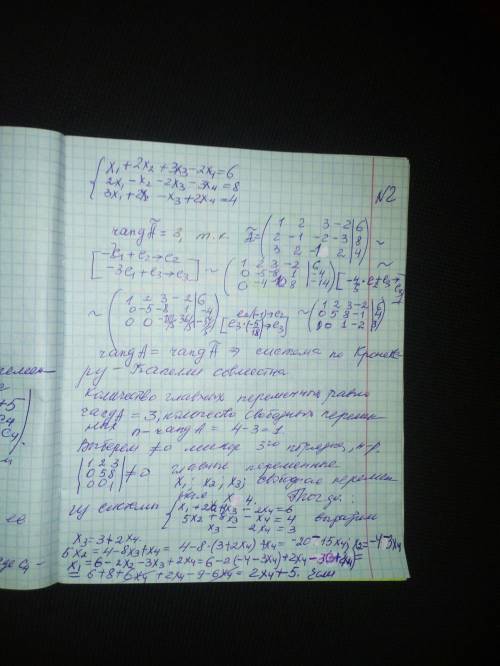 x₁+2x₂+3x₃-2x₄=6
2x₁-x₂-2x₃-3x₄=8
3x₁+2x₂-x₃+2x₄=4
N2
rang Ã = 3, т.к. Ã = ( 1 2 3 -2 | 6
2 -1 -2 -3 | 8
3 2 -1 2 | 4 ) ~
[ -2e₁+e₂→e₂
-3e₁+e₃→e₃ ] ~ ( 1 2 3 -2 | 6
0 -5 -8 1 | -4
0 -4 -10 8 | -14 ) [ -4/5·e₂+e₃→e₃ ] ~
~ ( 1 2 3 -2 | 6
0 -5 -8 1 | -4
0 0 -18/5 36/5 | -54/5 ) [ e₂·(-1)→e₂
e₃·(-5/18)→e₃ ] ~ ( 1 2 3 -2 | 6
0 5 8 -1 | 4
0 0 1 -2 | 3 )
rang A = rang Ã ⇒ система по Кронеке-
ру - Капелли совместна.
Количество главных переменных равно
rang A = 3, количество свободных перемен-
ных n - rang A = 4-3=1
Выберем ≠0 минор 3го порядка, н-р,
| 1 2 3
0 5 8
0 0 1 | ≠0 главные переменные
x₁, x₂, x₃; свободная перемен-
ная x₄. Тогда:
из системы { x₁+2x₂+3x₃-2x₄=6
5x₂+8x₃-x₄=4
x₃-2x₄=3 выразим
x₃=3+2x₄
5x₂=4-8x₃+x₄= 4-8·(3+2x₄)+x₄= -20-15x₄, x₂=-4-3x₄
x₁=6-2x₂-3x₃+2x₄=6-2(-4-3x₄)+2x₄-3(3+2x₄)=
= 6+8+6x₄+2x₄-9-6x₄= 2x₄+5. Если